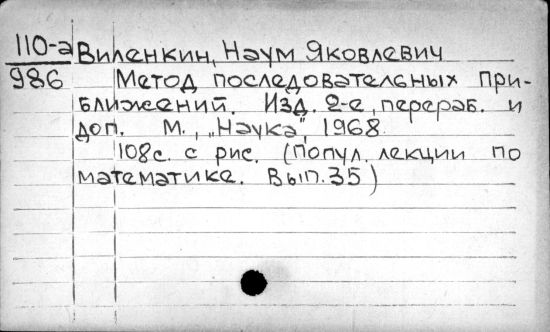 110-а Виленкин, Наум Яковлевич
986 Метод последовательных при-
ближений. Изд. 2-е, перераб. и
доп. М., „Наука", 1968.
108с. с рис. (Попул. лекции по
математике. Вып. 35)